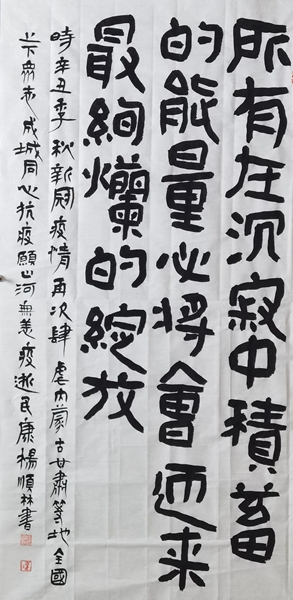 所有在沉寂中積蓄
的能量必将會迎来
最絢爛的綻放
時辛丑季秋新冠疫情再次肆虐内蒙古甘肅等地全國
上下眾志成城同心抗疫願山河無恙疫逝民康楊順林書